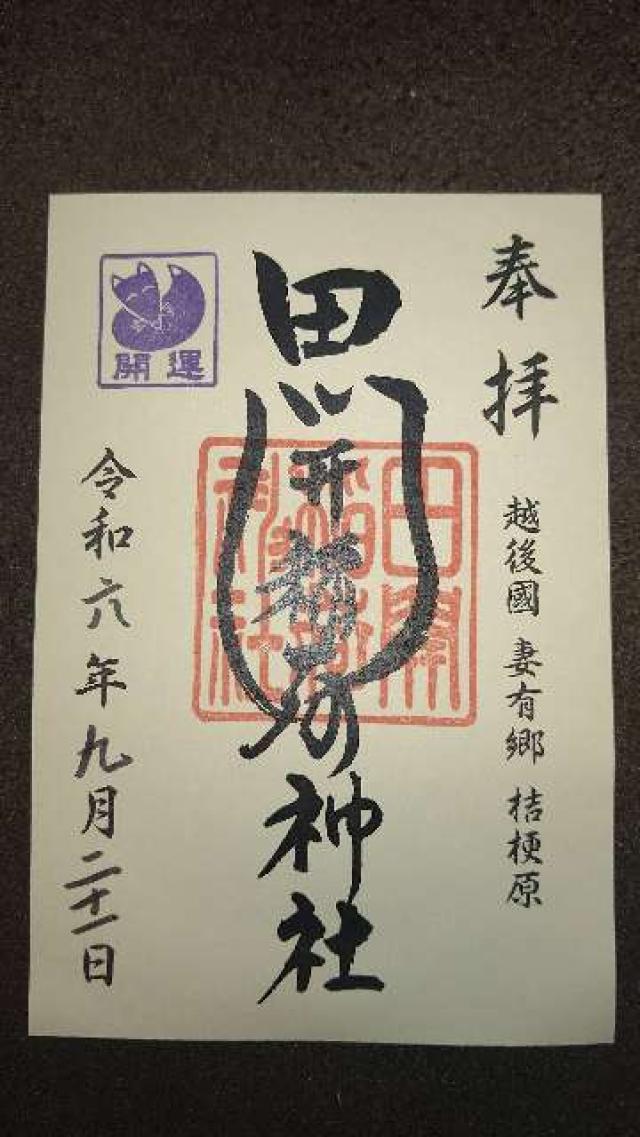 奉拝
越後國 妻有郷 桔梗原
田開稲荷神社
田開稲荷神社
開運
令和六年九月二十一日